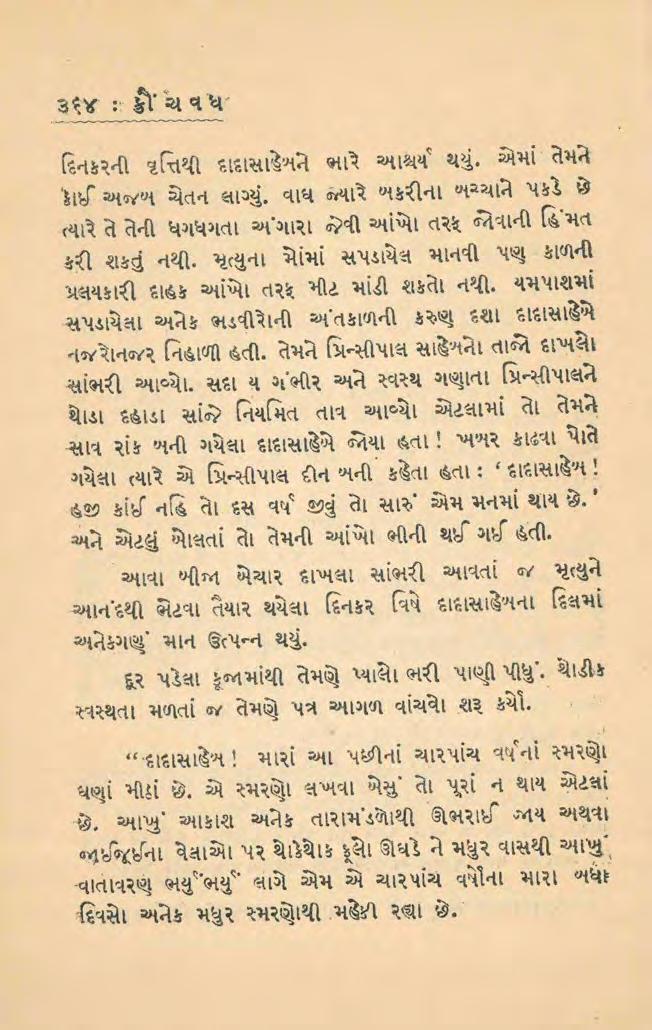 ૩૬૪ : ક્રૌંચવધ
દિનકરની વૃત્તિથી દાદાસાહેબને ભારે આશ્ચર્ય થયું. એમાં તેમને
કાેઈ અજબ ચેતન લાગ્યું. વાઘ જ્યારે બકરીના બચ્ચાને પકડે છે
ત્યારે તે તેની ધગધગતા અંગારા જેવી આંખો તરફ જોવાની હિંમત
કરી શકતું નથી. મૃત્યુના મોંમાં સપડાયેલ માનવી પણ કાળની
પ્રલયકારી દાહક આંખો તરફ મીટ માંડી શકતો નથી. યમપાશમાં
સપડાયેલા અનેક ભડવીરોની અંતકાળની કરુણ દશા દાદાસાહેબે
નજરોનજર નિહાળી હતી. તેમને પ્રિન્સીપાલ સાહેબનો તાજો દાખલો
સાંભરી આવ્યો. સદા ય ગંભીર અને સ્વસ્થ ગણાતા પ્રિન્સીપાલને
થોડા દહાડા સાંજે નિયમિત તાવ આવ્યો એટલામાં તો તેમને
સાવ રાંક બની ગયેલા દાદાસાહેબે જોયા હતા! ખબર કાઢવા પોતે
ગયેલા ત્યારે એ પ્રિન્સીપાલ દીન બની કહેતા હતા : ‘દાદાસાહેબ!
હજી કાંઈ નહિ તો દસ વર્ષ જીવું તો સારું એમ મનમાં થાય છે.’
અને એટલું બોલતાં તો તેમની આંખો ભીની થઈ ગઈ હતી.
આવા બીજા બેચાર દાખલા સાંભરી આવતાં જ મૃત્યુને
આનંદથી ભેટવા તૈયાર થયેલા દિનકર વિષે દાદાસાહેબના દિલમાં
અનેકગણું માન ઉત્પન્ન થયું.
દૂર પડેલા કૂજામાંથી તેમણે પ્યાલો ભરી પાણી પીધું. થોડીક
સ્વસ્થતા મળતાં જ તેમણે પત્ર આગળ વાંચવો શરૂ કર્યો.
“દાદાસાહેબ! મારાં આ પછીનાં ચારપાંચ વર્ષનાં સ્મરણો
ઘણાં મીઠાં છે. એ સ્મરણો લખવા બેસું તો પૂરાં ન થાય એટલાં
છે. આખું આકાશ અનેક તારામંડળોથી ઊભરાઈ જાય અથવા
જાઈજૂઈના વેલાઓ પર થોકેથોક ફૂલો ઊઘડે ને મધુર વાસથી આખું
વાતાવરણ ભર્યુંભર્યું લાગે એમ એ ચારપાંચ વર્ષોના મારા બધા
દિવસો અનેક મધુર સ્મરણોથી મહેકી રહ્યા છે.